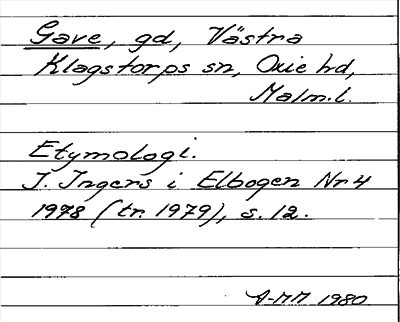 Gave, gd, Västra
Klagstorps sn, Oxie hd,
Malm.l.
Etymologi.
I. Ingers i Elbogen Nr 4
1978 (tr. 1979), s. 12.
A-MM 1980